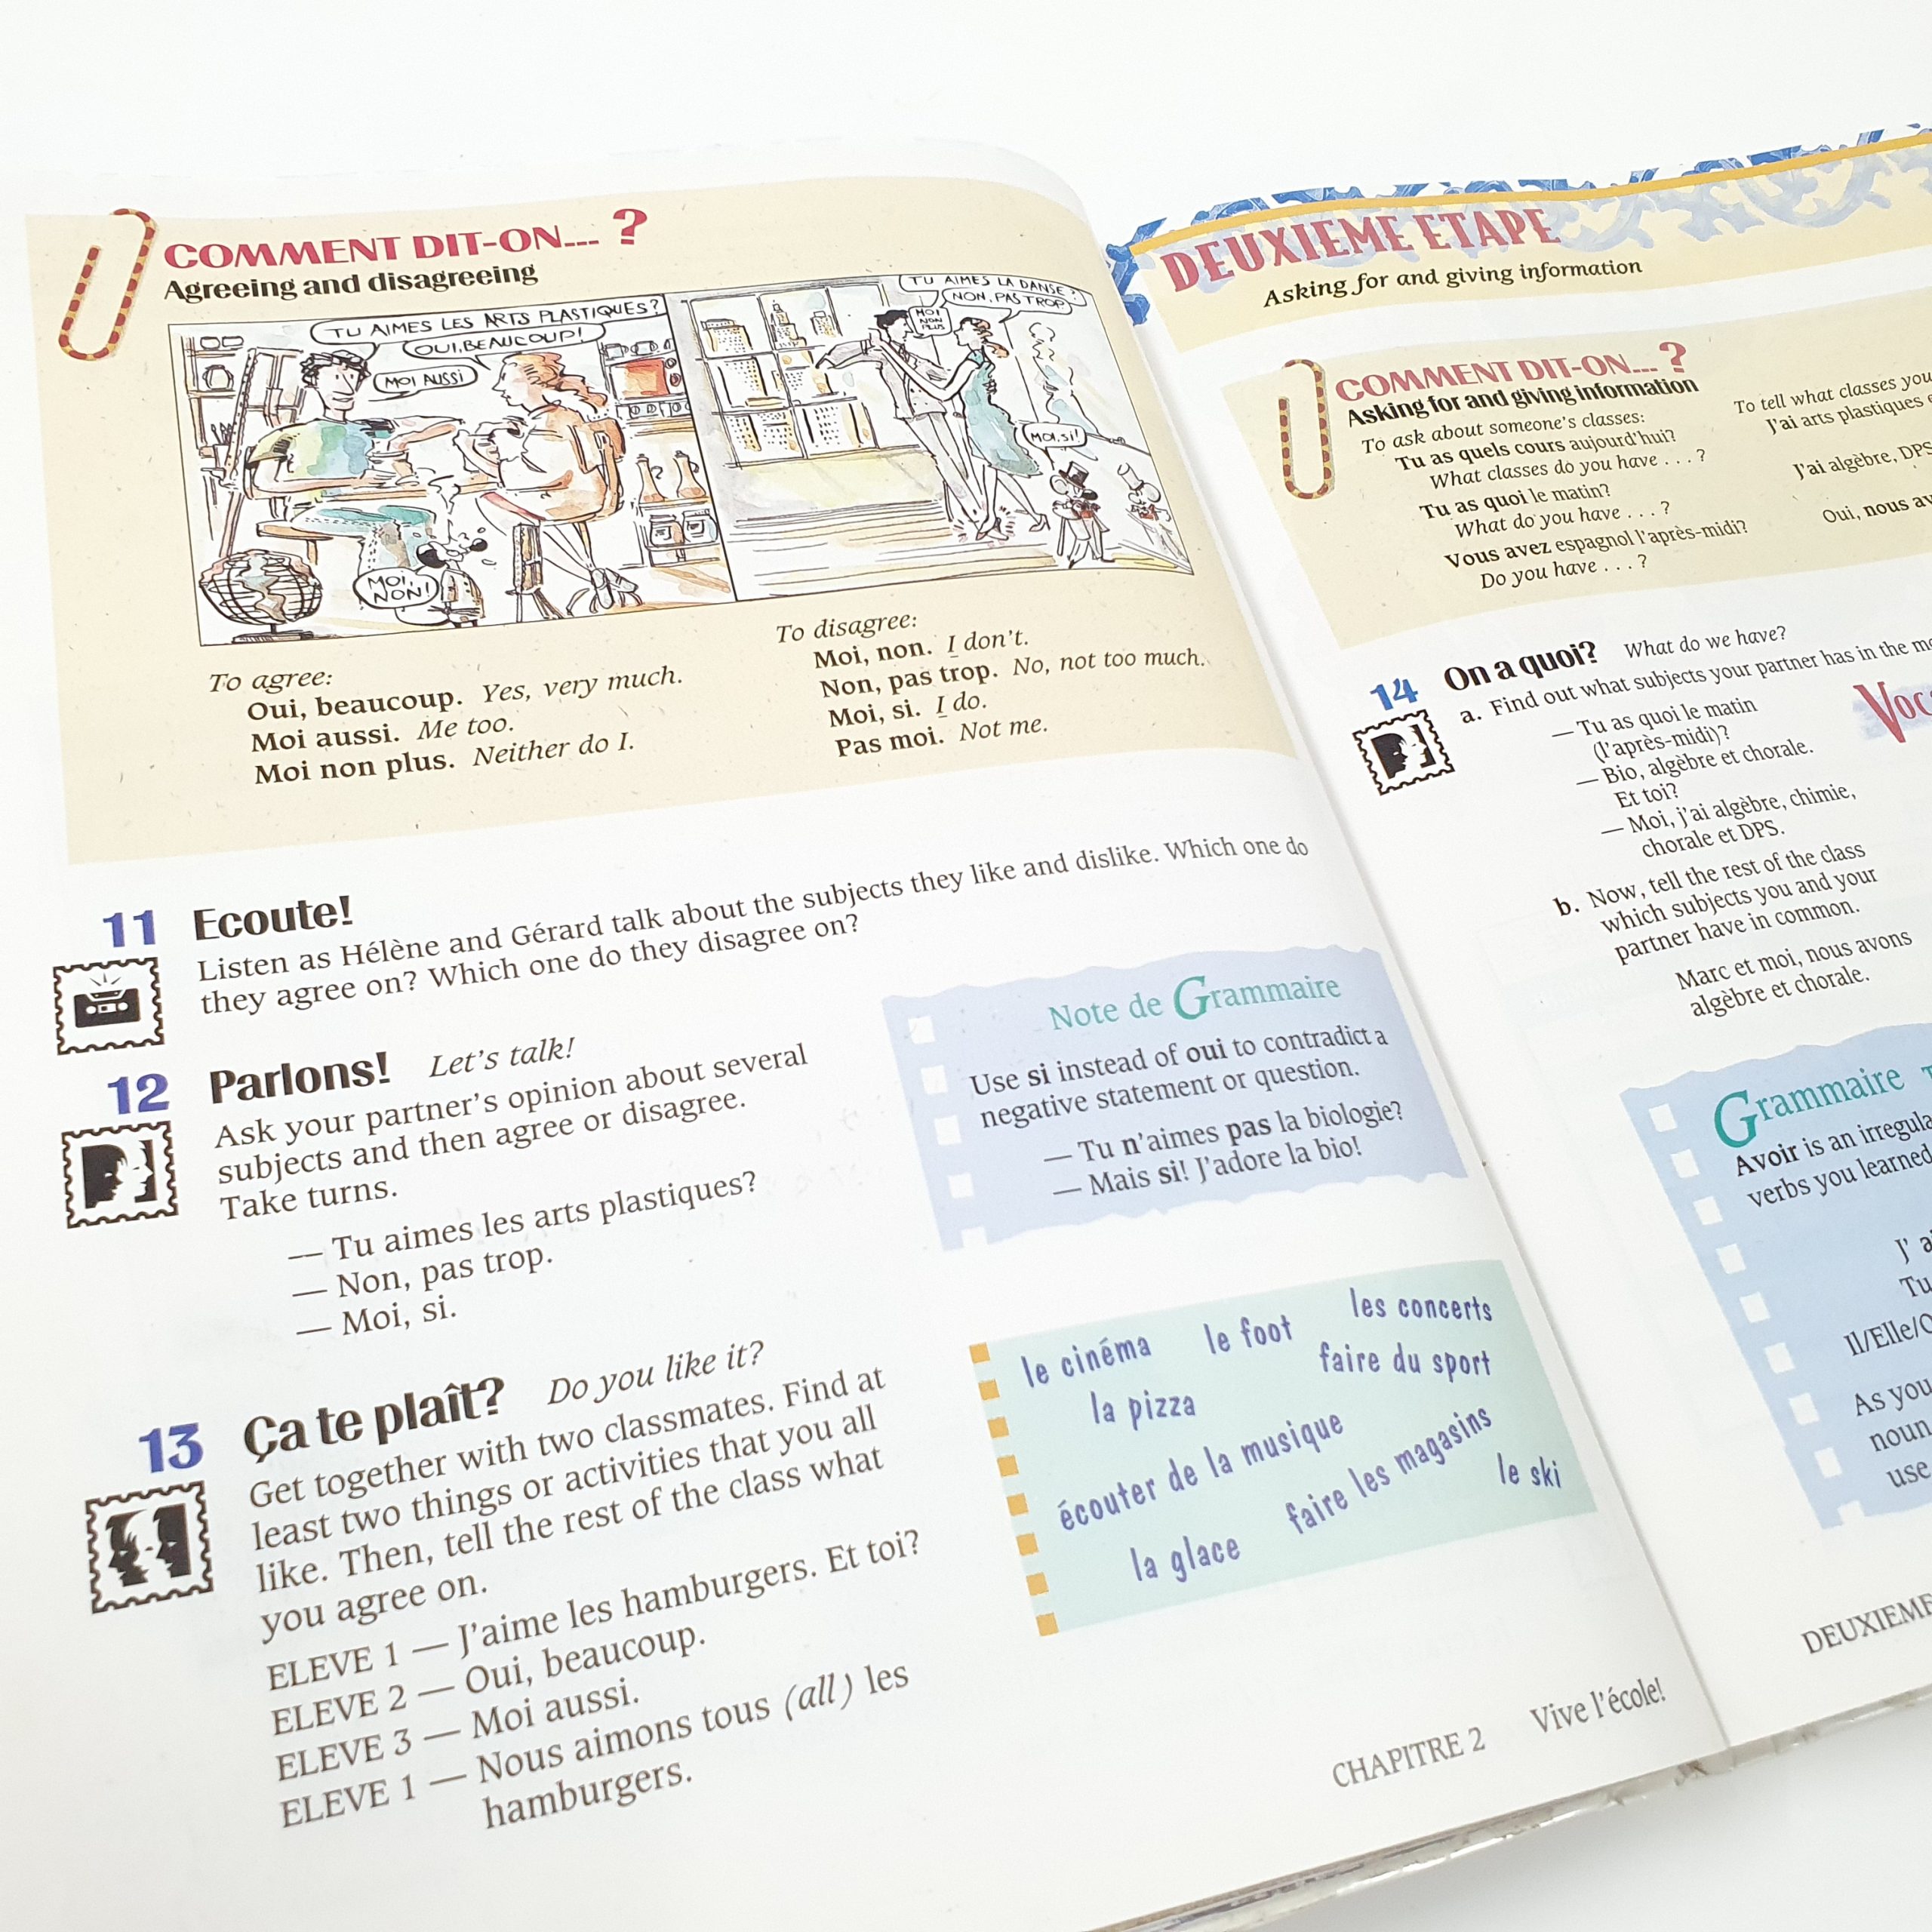 COMMENT DIT-ON... ?
Agreeing and disagreeing
TU AIMES LES ARTS PLASTIQUES?
OUI, BEAUCOUP!
MOI AUSSI
MOI, NON!
TU AIMES LA DANSE?
NON, PAS TROP
MOI NON PLUS
MOI, SI!
To agree:
Oui, beaucoup. Yes, very much.
Moi aussi. Me too.
Moi non plus. Neither do I.
To disagree:
Moi, non. I don't.
Non, pas trop. No, not too much.
Moi, si. I do.
Pas moi. Not me.
11 Ecoute!
Listen as Hélène and Gérard talk about the subjects they like and dislike. Which one do
they agree on? Which one do they disagree on?
12 Parlons! Let's talk!
Ask your partner's opinion about several
subjects and then agree or disagree.
Take turns.
— Tu aimes les arts plastiques?
— Non, pas trop.
— Moi, si.
Note de Grammaire
Use si instead of oui to contradict a
negative statement or question.
— Tu n'aimes pas la biologie?
— Mais si! J'adore la bio!
13 Ça te plaît? Do you like it?
Get together with two classmates. Find at
least two things or activities that you all
like. Then, tell the rest of the class what
you agree on.
ELEVE 1 — J'aime les hamburgers. Et toi?
ELEVE 2 — Oui, beaucoup.
ELEVE 3 — Moi aussi.
ELEVE 1 — Nous aimons tous (all) les
hamburgers.
le cinéma
le foot
les concerts
la pizza
faire du sport
écouter de la musique
faire les magasins
le ski
la glace
CHAPITRE 2 Vive l'école!
DEUXIEME ETAPE
Asking for and giving information
COMMENT DIT-ON... ?
Asking for and giving information
To ask about someone's classes:
Tu as quels cours aujourd'hui?
What classes do you have . . . ?
Tu as quoi le matin?
What do you have . . . ?
Vous avez espagnol l'après-midi?
Do you have . . . ?
To tell what classes you
J'ai arts plastiques
J'ai algèbre, DPS
Oui, nous
14 On a quoi? What do we have?
a. Find out what subjects your partner has in the
— Tu as quoi le matin
(l'après-midi)?
— Bio, algèbre et chorale.
Et toi?
— Moi, j'ai algèbre, chimie,
chorale et DPS.
b. Now, tell the rest of the class
which subjects you and your
partner have in common.
Marc et moi, nous avons
algèbre et chorale.
Grammaire
Avoir is an
verbs you learned
J'
Tu
Il/Elle/
As you
noun
use
DEUXIEME